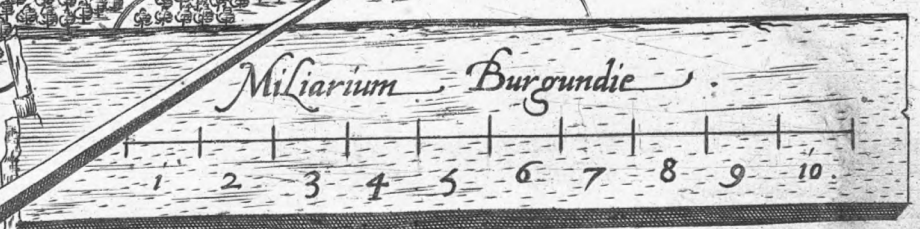 Miliarium Burgundie.
1 2 3 4 5 6 7 8 9 10.